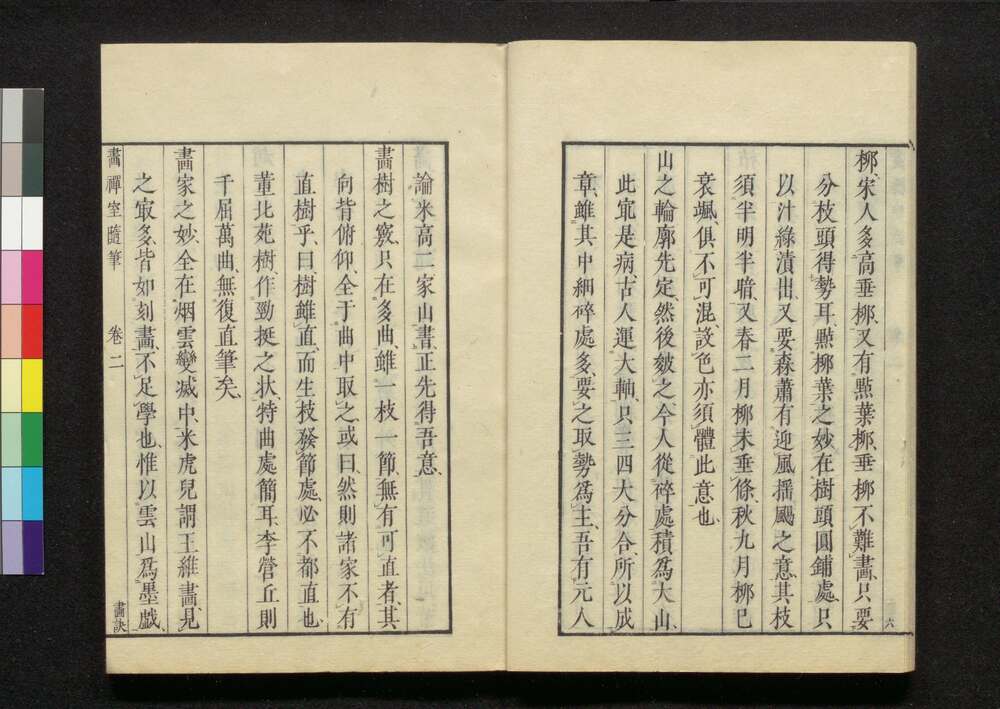 柳宋人多高垂柳又有㸃葉柳垂柳不難畫只要
分枝頭得勢耳㸃柳葉之妙在樹頭圓鋪處只
以汁綠漬出又要森蕭有迎風揺颺之意其枝
須半明半暗又春二月柳未垂條秋九月柳已
衰颯俱不可混設色亦須體此意也
山之輪廓先定然後皴之今人從碎處積爲大山
此㝡是病古人運大軸只三四大分合所以成
章雖其中細碎處多要之取勢爲主吾有元人
六
論米高二家山書正先得吾意
畫樹之竅只在多曲雖一枝一節無有可直者其
向背俯仰全于曲中取之或曰然則諸家不有
直樹乎曰樹雖直而生枝發節處必不都直也
董北苑樹作勁挺之状特曲處簡耳李營丘則
千屈萬曲無復直筆矣
畫家之妙全在烟雲變滅中米虎兒謂王維畫見
之㝡多皆如刻畫不足學也惟以雲山爲墨戯
畫禪室隨筆 卷二 畫訣